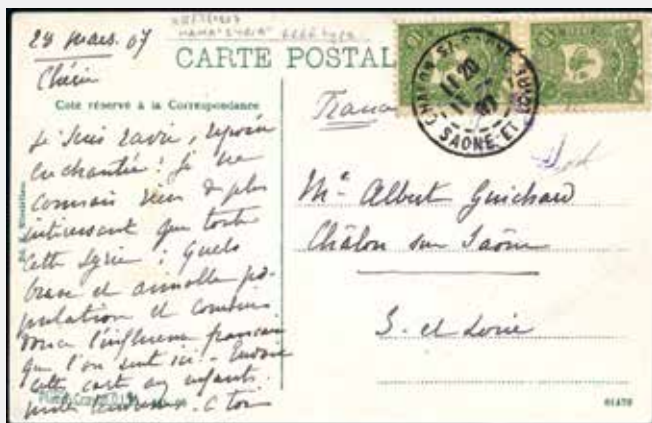 29 mars. 07
CARTE POSTAL
Chérie
Coté réservé à la Correspondance
Je suis ravie, reposée
enchantée! Je ne
connais rien de plus
intéressant que toute
cette Syrie : quelle
brave et aimable po-
pulation et comme
douce l'influence française
que l'on sent ici - Envoie
cette carte aux enfants
tendresses. à toi
France
CHALON S. SAONE
11 20
11
07
SAONE ET LOIRE
10
10
Mr Albert Guichard
Châlon sur Saône
S. et Loire
61479